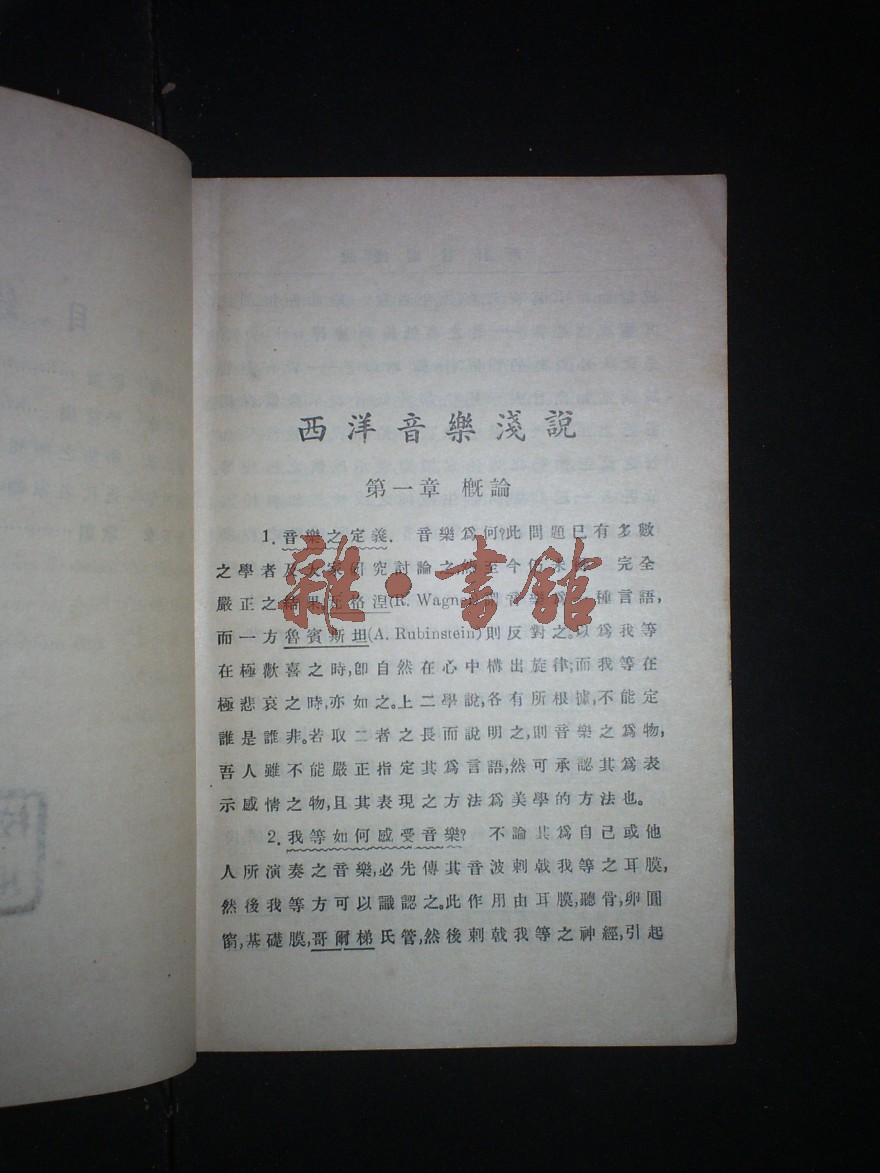 目
西洋音樂淺說
第一章 概論
1. 音樂之定義. 音樂爲何?此問題已有多數
之學者及大家研究討論之,然至今仍未得 完全
嚴正之結果,瓦格涅(R. Wagner)謂音樂爲一種言語,
而一方魯賓斯坦(A. Rubinstein)則反對之。以爲我等
在極歡喜之時,卽自然在心中構出旋律;而我等在
極悲哀之時,亦如之。上二學說,各有所根據,不能定
誰是誰非。若取二者之長而說明之,則音樂之爲物,
吾人雖不能嚴正指定其爲言語,然可承認其爲表
示感情之物,且其表現之方法爲美學的方法也。
2. 我等如何感受音樂? 不論其爲自己或他
人所演奏之音樂,必先傳其音波刺戟我等之耳膜,
然後我等方可以識認之。此作用由耳膜,聽骨,卵圓
窗,基礎膜,哥爾梯氏管,然後刺戟我等之神經,引起
雜·書館